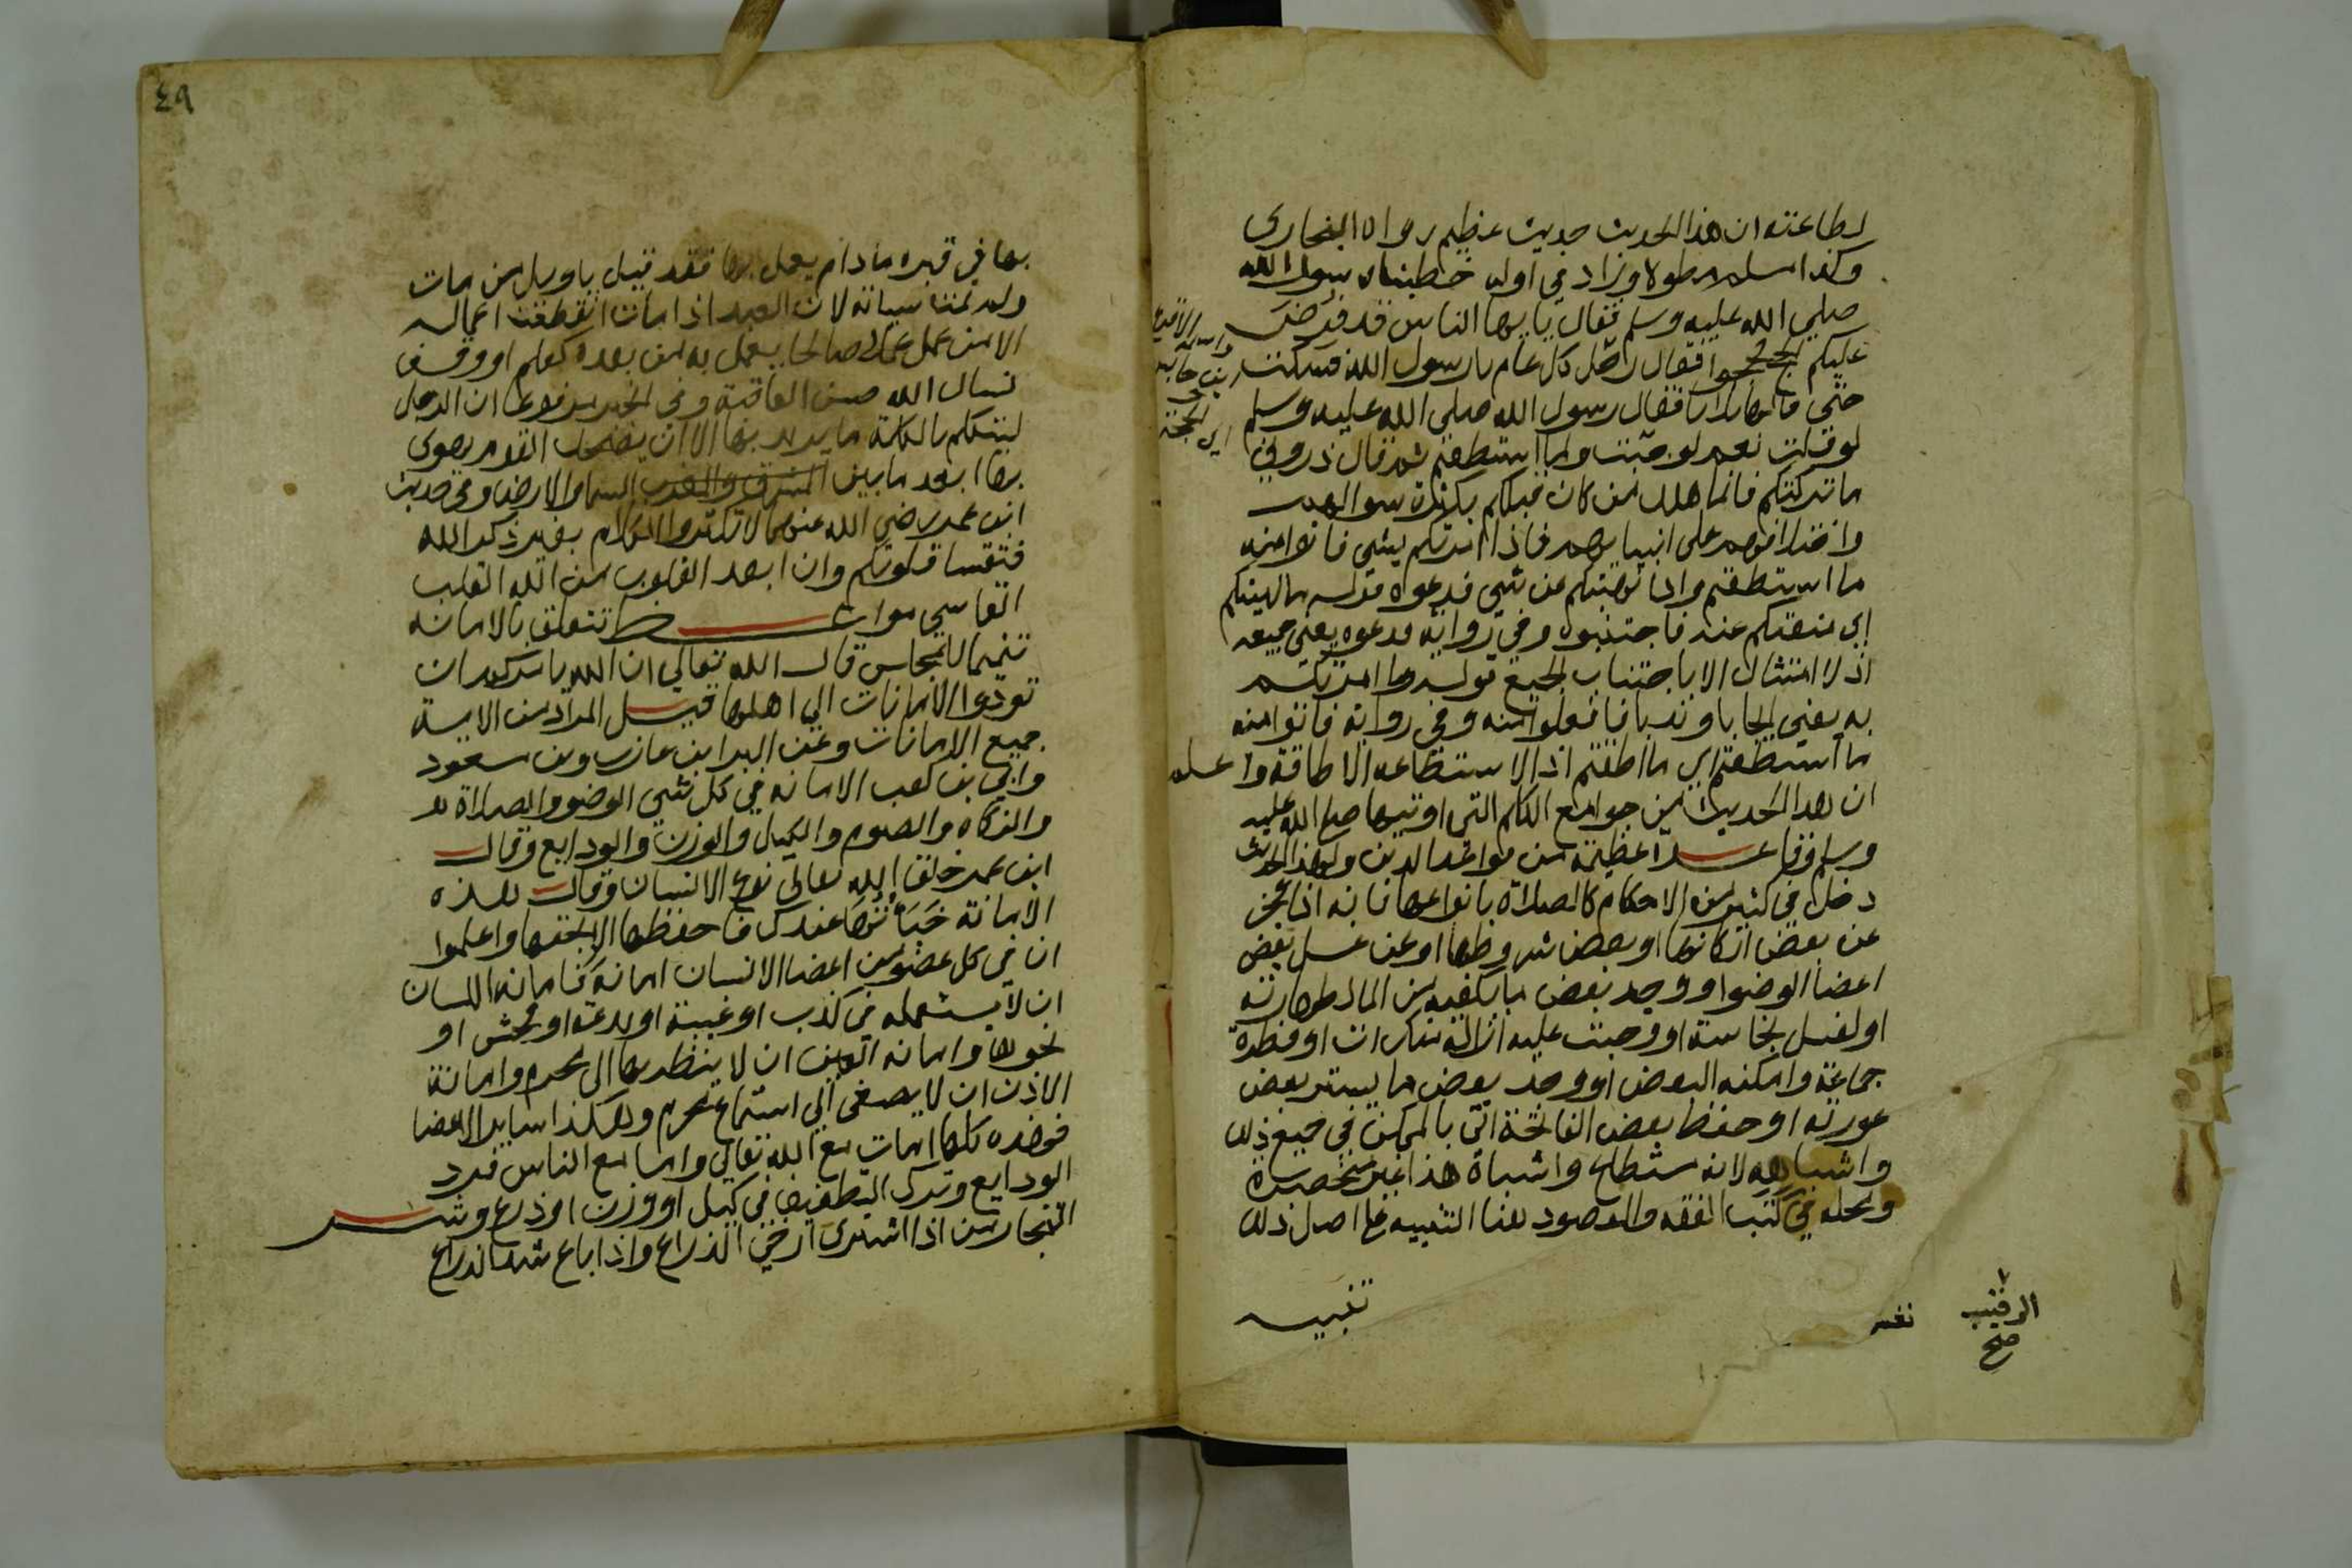 لطاعته ان هذا الحديث حديث عظيم رواه البخاري
وكذا مسلم مطولا وزاد في اوله خطبنا رسول الله
صلي الله عليه وسلم فقال يا يها الناس قد فرض
عليكم الحج فحجوا فقال رجل اكل عام يا رسول الله فسكت
حتي قالها ثلاثا فقال رسول الله صلي الله عليه وسلم
لو قلت نعم لوجبت ولما استطعتم ثم قال ذروني
ما تركتكم فانما هلك من كان قبلكم بكثرة سوالهم
واختلافهم علي انبيايهم فاذا امرتكم بشي فاتوا منه
ما استطعتم واذا نهيتكم عن شي فدعوه قوله ما نهيتكم
اي منعتكم عنه فاجتنبوه وفي رواية فدعوه يعني جميعه
اذ لا امتثال الا باجتناب الجميع قوله وما امرتكم
به يعني ايجابا وندبا فافعلوا منه وفي رواية فاتوا منه
ما استطعتم اي ما اطقتم اذ الاستطاعه الاطاقة واعلم
ان هذا الحديث من جوامع الكلم التي اوتيها صلي الله عليه
وسلم وقاعدة عظيمة من قواعد الدين ولهذا الحديث
دخل في كثير من الاحكام كالصلاة بانواعها فانه اذا عجز
عن بعض اركانها او بعض شروطها او عن غسل بعض
اعضا الوضوا ووجد بعض ما يكفيه من الما لطهارته
او لغسل نجاسة او وجبت عليه ازالة منكرات او فطرة
جماعة وامكنه البعض او وجد بعض ما يستر بعض
عورته او حفظ بعض الفاتحة اتي بالممكن في جميع ذلك
واشباهه لانه مستطاع واشباه هذا غير منحصرة
ومحله في كتب الفقه والمقصود هنا التنبيه علي اصل ذلك
تنبيه
٤٩
بها في قبره ما دام يعمل بها فقد قيل يا ويل من مات
ولم تمت سياته لان العبد اذا مات انقطعت اعماله
الا من عمل عملا صالحا يعمل به من بعده كعلم او وقف
نسال الله حسن العاقبة وفي الخبر مرفوعا ان الرجل
ليتكلم بالكلمة ما يريد بها الا ان يضحك القوم يهوي
بها ابعد ما بين المشرق والمغرب السما والارض وفي حديث
ابن عمر رضي الله عنهما لا تكثروا الكلام بغير ذكر الله
فتقسا قلوبكم وان ابعد القلوب من الله القلب
القاسي مواعظ تتعلق بالامانه
تتميما للمجلس قال الله تعالي ان الله يامركم ان
تودوا الامانات الي اهلها قيل المراد من الاية
جميع الامانات وعن البرا بن عازب وبن مسعود
وابي بن كعب الامانه في كل شي الوضو والصلاة
والزكاه والصوم والكيل والوزن والودايع وقال
ابن عمر خلق الله تعالي نوع الانسان وقال هذه
الامانة خباتها عندك فاحفظها الا بحقها واعلموا
ان في كل عضو من اعضا الانسان امانة فامانه اللسان
ان لا يستعمله في كذب او غيبة او بدعة او فحش او
نحوها وامانه العين ان لا ينظر بها الي محرم وامانة
الاذن ان لا يصغي الي استماع محرم وهكذا ساير الاعضا
فهذه كلها امانات مع الله تعالي واما مع الناس فرد
الودايع وترك التطفيف في كيل او وزن او ذرع وشر
التجار من اذا اشترى ارخي الذراع واذا باع شد الذراع